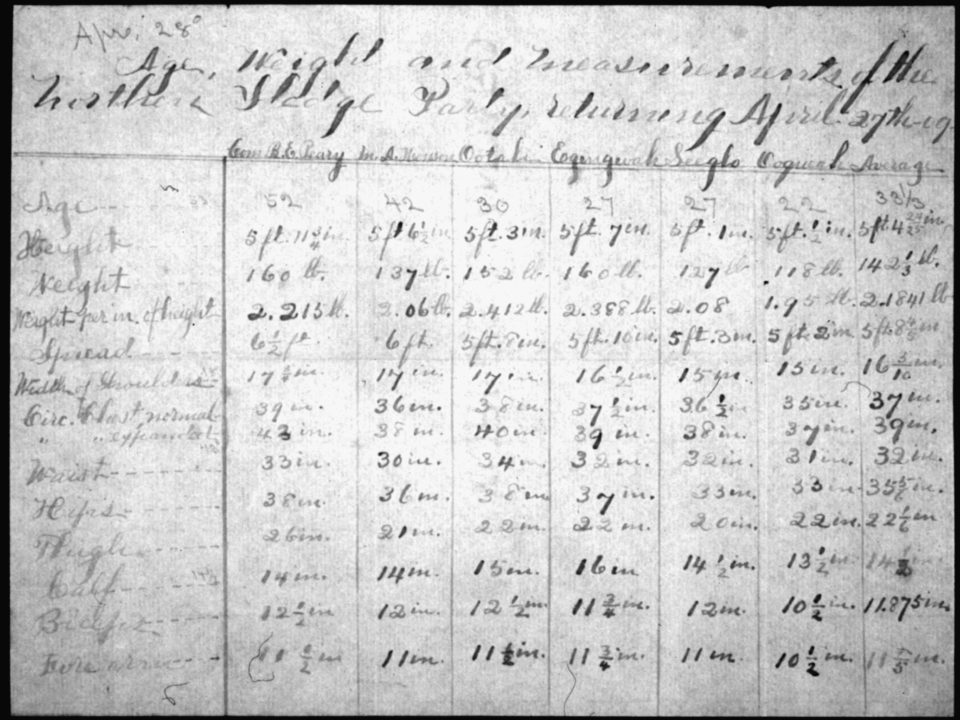 Apr. 28°
Age, Weight and Measurements of the
Northern Sledge Party, returning April 27th-19
Com R.E. Peary M.A. Henson Ootah Egingwah Seeglo Ooqueah Average
Age 52 42 30 27 27 22 33 1/3
Height 5 ft. 11 3/4 in. 5 ft 6 1/2 in 5 ft. 3 in. 5 ft. 7 in. 5 ft. 1 in. 5 ft. 1/2 in. 5 ft 4 in.
Weight 160 lb. 137 lb. 152 lb. 160 lb. 127 lb 118 lb. 142 1/3 lb.
Weight per in. of height 2.215 lb. 2.06 lb. 2.412 lb. 2.388 lb. 2.08 1.95 lb. 2.1841 lb
Spread 6 1/2 ft 6 ft. 5 ft. 8 in. 5 ft. 10 in. 5 ft. 3 in. 5 ft. 2 in. 5 ft. 8 in
Width of Shoulders 17 in. 17 in. 17 in. 16 1/2 in. 15 in. 15 in. 16 3/10 in.
Circ. Chest normal 39 in. 36 in. 38 in. 37 1/2 in. 36 1/2 in. 35 in. 37 in.
" " expanded 43 in. 38 in. 40 in. 39 in. 38 in. 37 in. 39 in.
Waist 33 in. 30 in. 34 in. 32 in. 32 in. 31 in. 32 in.
Hips 38 in. 36 in. 38 in. 37 in. 33 in. 33 in. 35 5/6 in.
Thigh 26 in. 21 in. 22 in. 22 in. 20 in. 22 in. 22 1/6 in
Calf 14 in. 14 in. 15 in. 16 in 14 1/2 in. 13 1/2 in. 14
Biceps 12 1/2 in 12 in. 12 1/2 in. 11 3/4 in. 12 in. 10 1/2 in. 11.875 in.
Fore arm 11 1/2 in 11 in. 11 1/2 in. 11 3/4 in. 11 in. 10 1/2 in. 11 in.